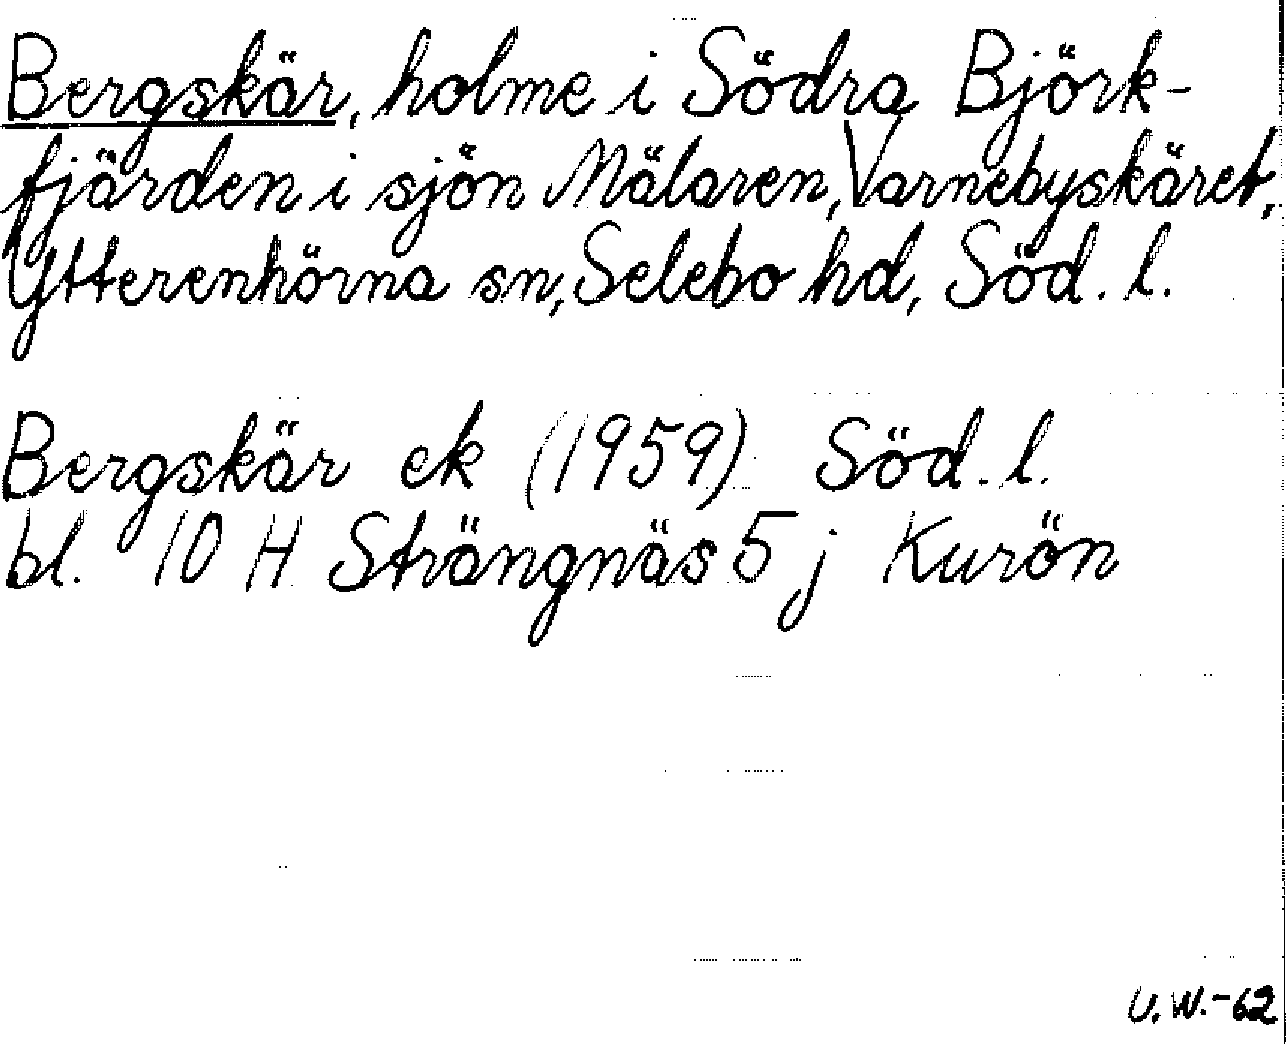 Bergskär, holme i Södra Björk-
fjärden i sjön Mälaren, Varnebyskäret,
Ytterenhörna sn, Selebo hd, Söd. l.
Bergskär ek (1959) Söd. l.
bl. 10 H Strängnäs 5 j Kurön
U.W.-62